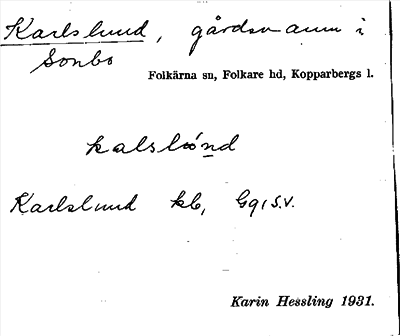 Karlslund, gårdsnamn i
Sonbo
Folkärna sn, Folkare hd, Kopparbergs l.
kalslönd
Karlslund kb, Gq, s.v.
Karin Hessling 1931.